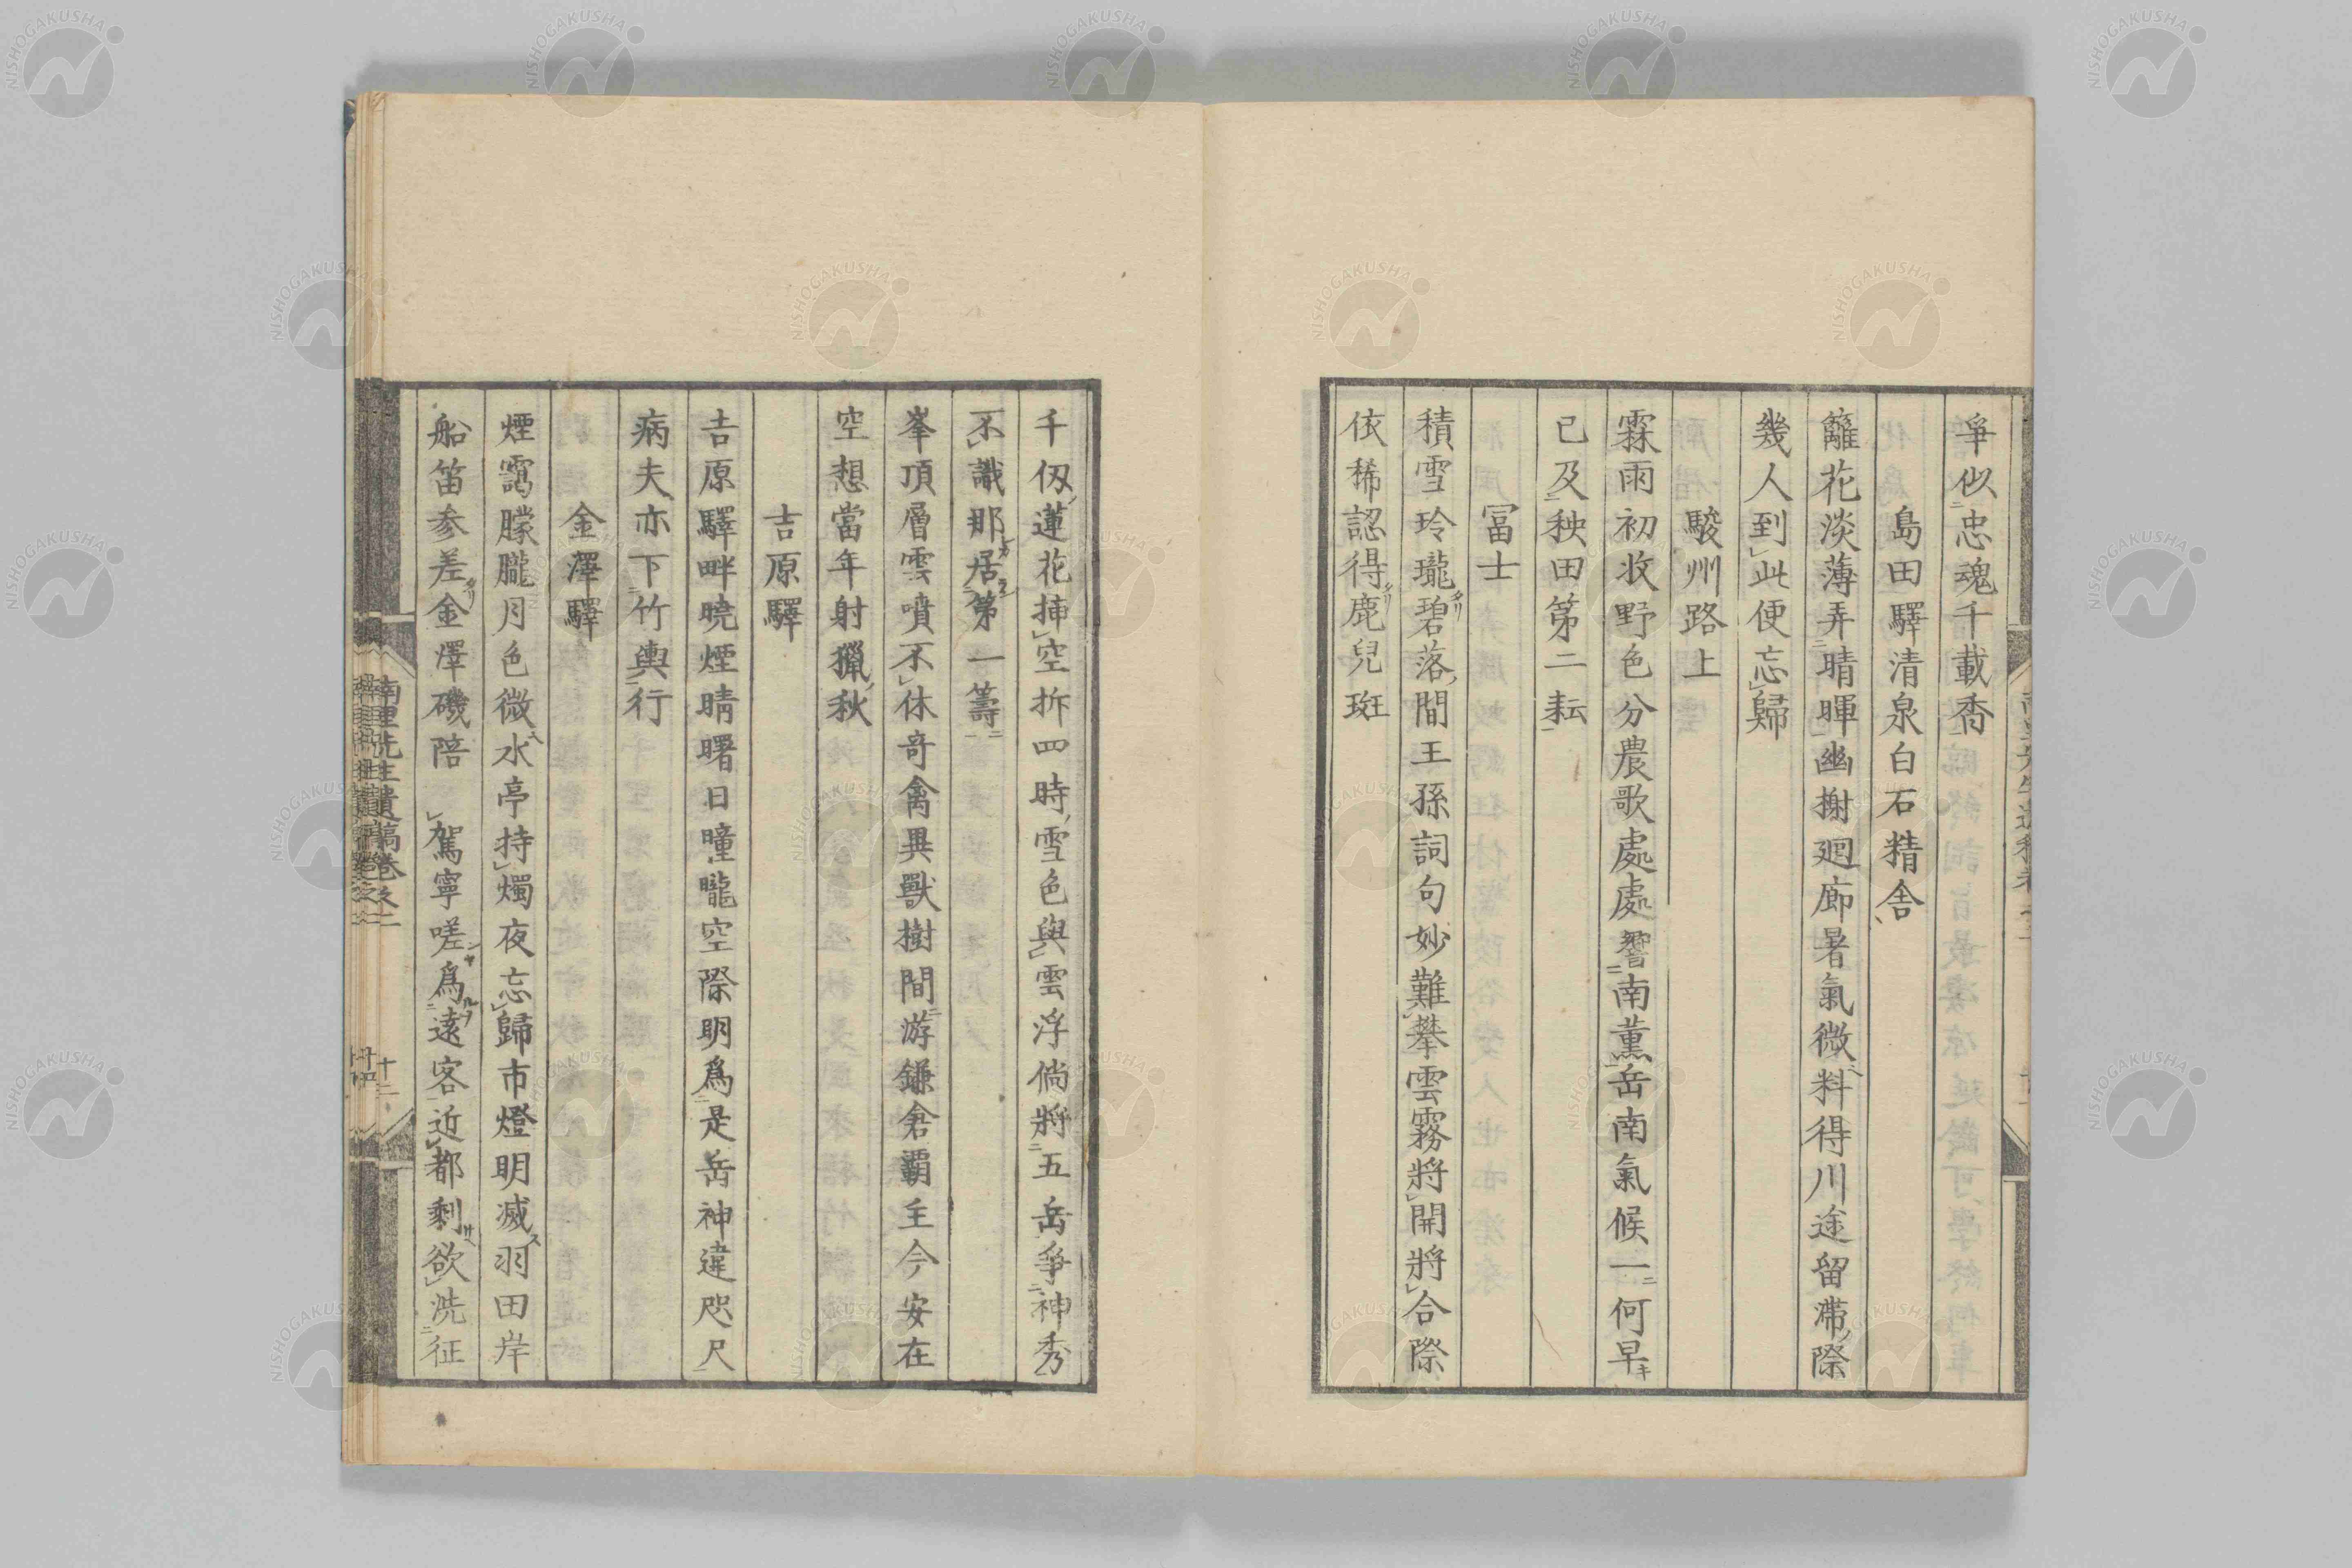 爭似忠魂千載香
島田驛清泉白石精舎
籬花淡薄弄晴暉幽榭廻廊暑氣微料得川途留滯際
幾人到此便忘歸
駿州路上
霖雨初收野色分農歌處處響南薫岳南氣候一何早
已及秧田第二耘
冨士
積雪玲瓏碧落間王孫詞句妙難攀雲霧將開將合際
依稀認得鹿兒斑
千仭蓮花挿空拆四時雪色與雲浮倘將五岳爭神秀
不識那居第一籌
峯頂層雲噴不休奇禽異獸樹間游鎌倉覇主今安在
空想當年射獵秋
吉原驛
吉原驛畔曉煙晴曙日曈曨空際明爲是岳神違咫尺
病夫亦下竹輿行
金澤驛
煙靄朦朧月色微水亭持燭夜忘歸市燈明滅羽田岸
船笛参差金澤磯陪駕寧嗟爲遠客近都剩欲洗征
南里先生遺稿卷之二
十二
NISHOGAKUSHA